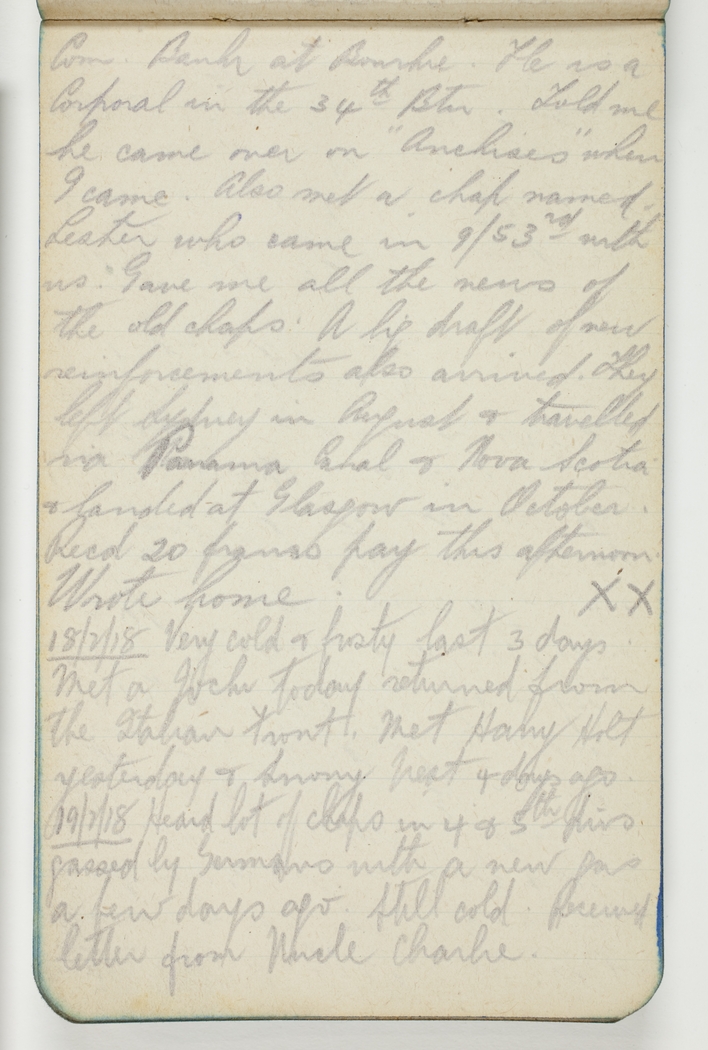 Com. Bank at Bourke. He is a
Corporal in the 34th Btn. Told me
he came over on "Anchises" when
I came. Also met a chap named
Lester who came in 9/53rd with
us. Gave me all the news of
the old chaps. A big draft of new
reinforcements also arrived. They
left Sydney in August & travelled
via Panama Canal & Nova Scotia
& landed at Glasgow in October.
Recd 20 francs pay this afternoon.
Wrote home. XX
18/2/18 Very cold & frosty last 3 days.
Met a today returned from
the Italian Front. Met Harry Holt
yesterday & 4 days ago.
19/2/18 Heard lot of chaps in 4 & 5th Divs.
gassed by Germans with a new gas
a few days ago. Still cold. Received
letter from Uncle Charlie.